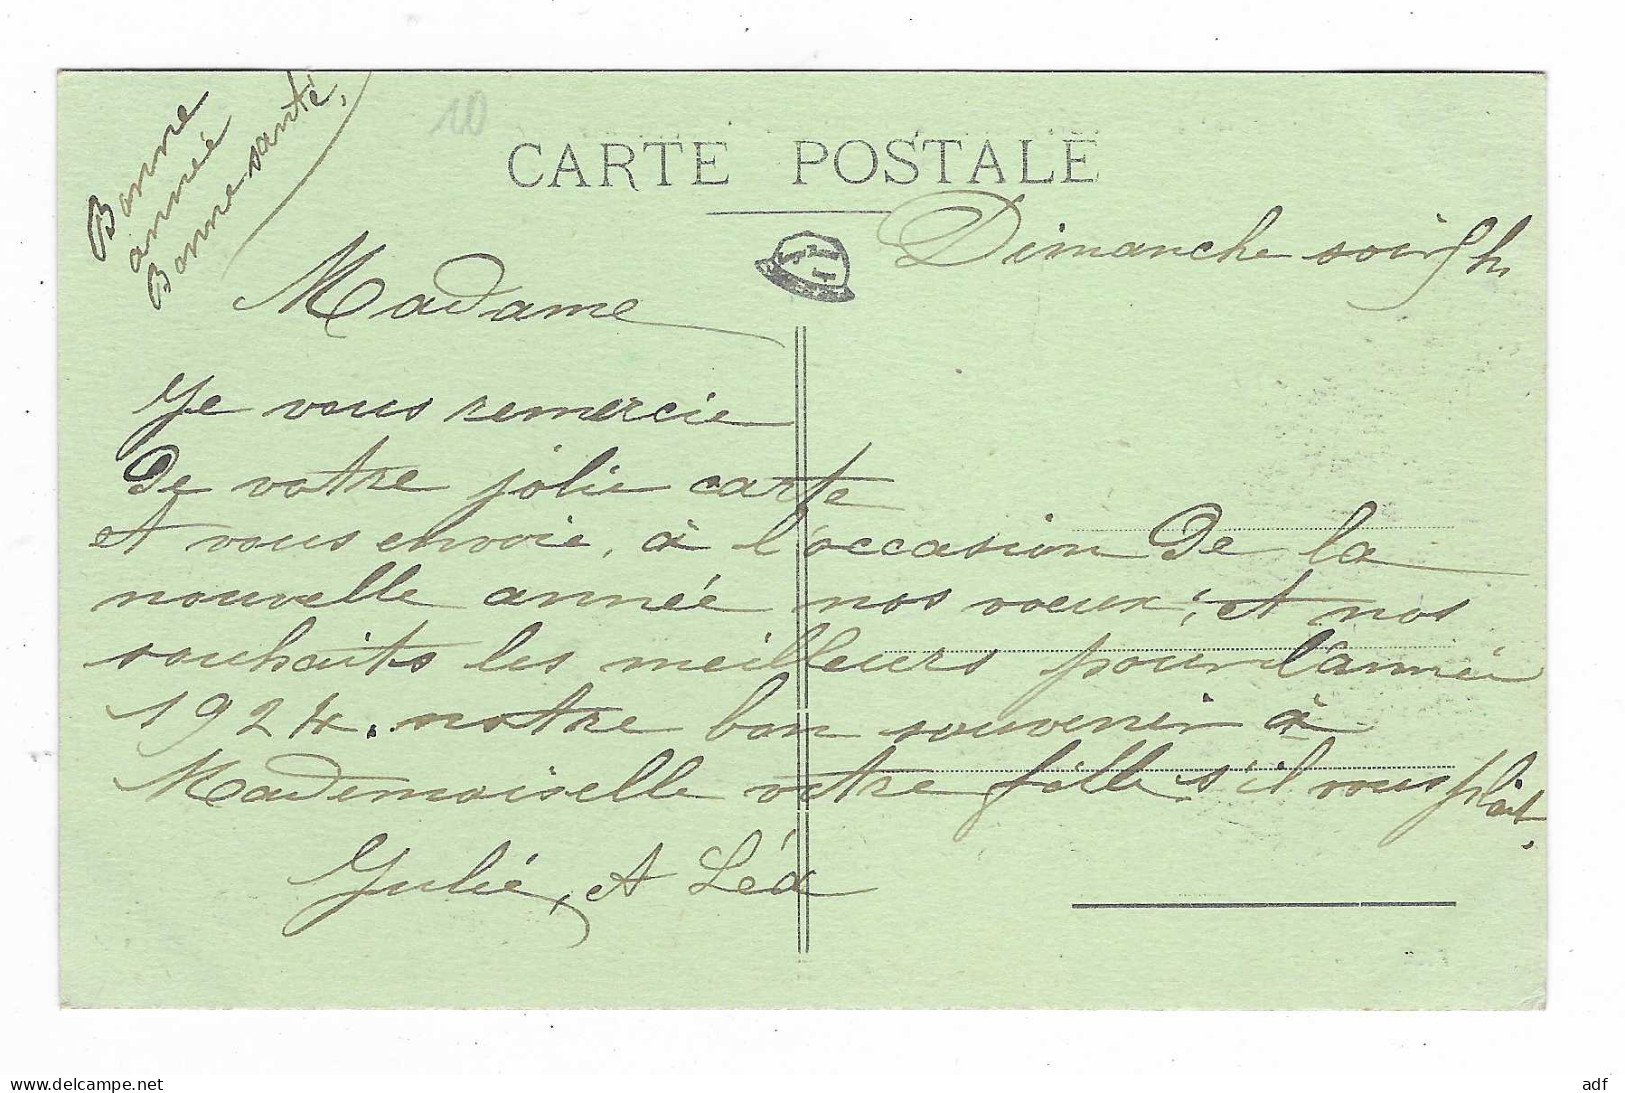 Bonne
année
Bonne santé.
10
CARTE POSTALE
Dimanche soir 9 h
Madame
Je vous remercie
De votre jolie carte
et vous envoie, à l'occasion De la
nouvelle année nos voeux, et nos
souhaits les meilleurs pour l'année
1924. notre bon souvenir à
Mademoiselle votre fille s'il vous plait.
Julie, et Léa
www.delcampe.net
adf